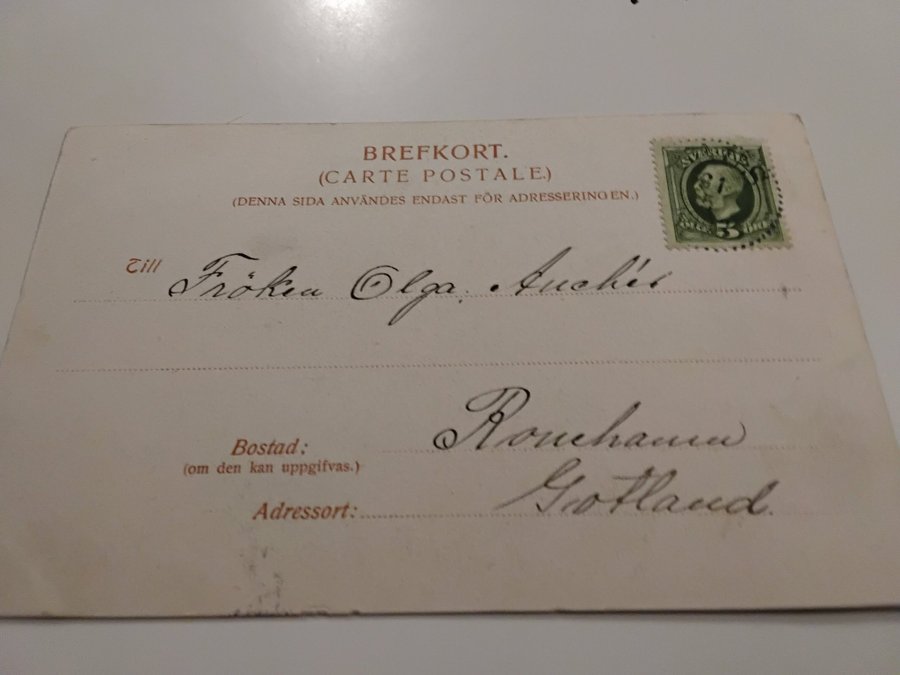 BREFKORT.
(CARTE POSTALE.)
(DENNA SIDA ANVÄNDES ENDAST FÖR ADRESSERINGEN.)
SVERIGE
5
Till Fröken Olga
Bostad:
(om den kan uppgifvas.)
Adressort: Gotland.